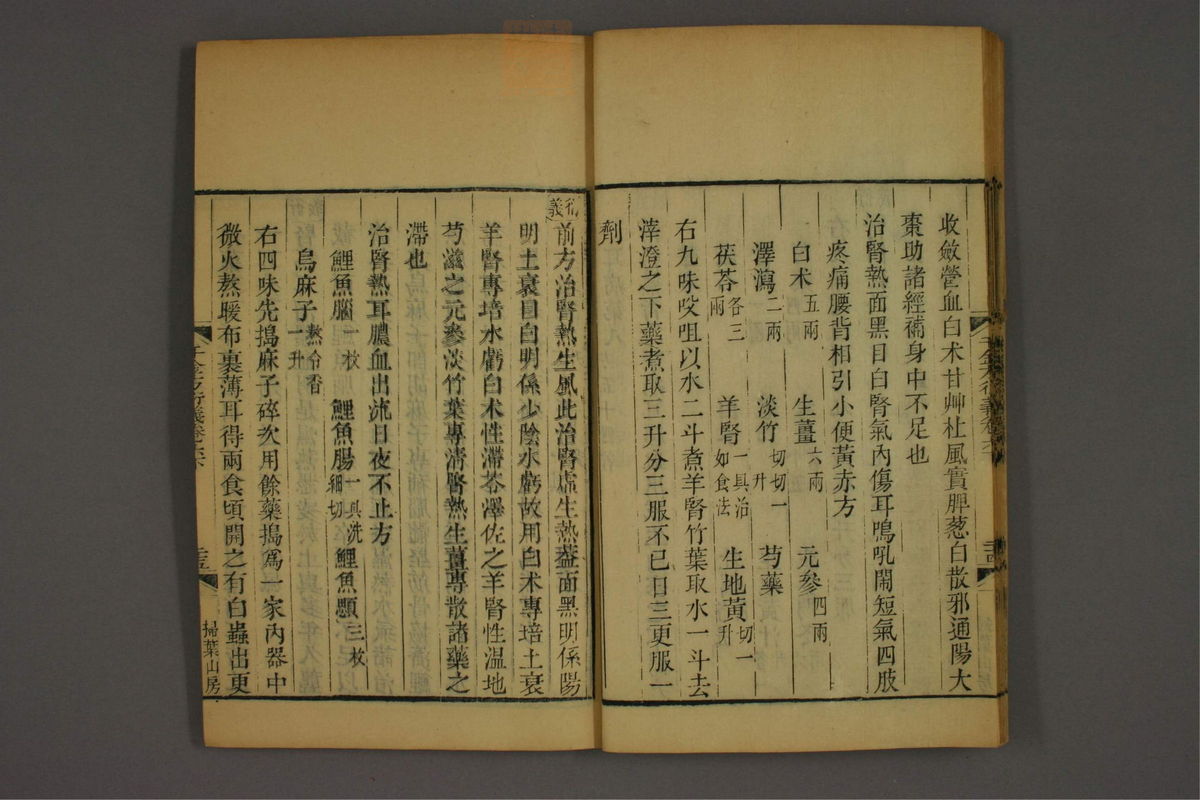 收斂營血白术甘艸杜風實脾葱白散邪通陽大
棗助諸經補身中不足也
治腎熱面黑目白腎氣內傷耳鳴吼鬧短氣四肢
疼痛腰背相引小便黃赤方
白术五兩 生薑六兩 元參四兩
澤瀉二兩 淡竹切切一升 芍藥
茯苓各三兩 羊腎一具治如食法 生地黃切一升
右九味㕮咀以水二斗煮羊腎竹葉取水一斗去
滓澄之下藥煮取三升分三服不已日三更服一
劑
衍義 前方治腎熱生風此治腎虛生熱葢面黑明係陽
明土衰目白明係少陰水虧故用白术專培土衰
羊腎專培水虧白术性滯苓澤佐之羊腎性溫地
芍滋之元參淡竹葉專清腎熱生薑專散諸藥之
滯也
治腎熱耳膿血出流日夜不止方
鯉魚腦一枚 鯉魚腸一具洗細切 鯉魚鰓三枚
烏麻子熬令香一升
右四味先搗麻子碎次用餘藥搗爲一家內器中
微火熬暖布裹薄耳得兩食頃開之有白蟲出更
千金方衍義卷之六
掃葉山房